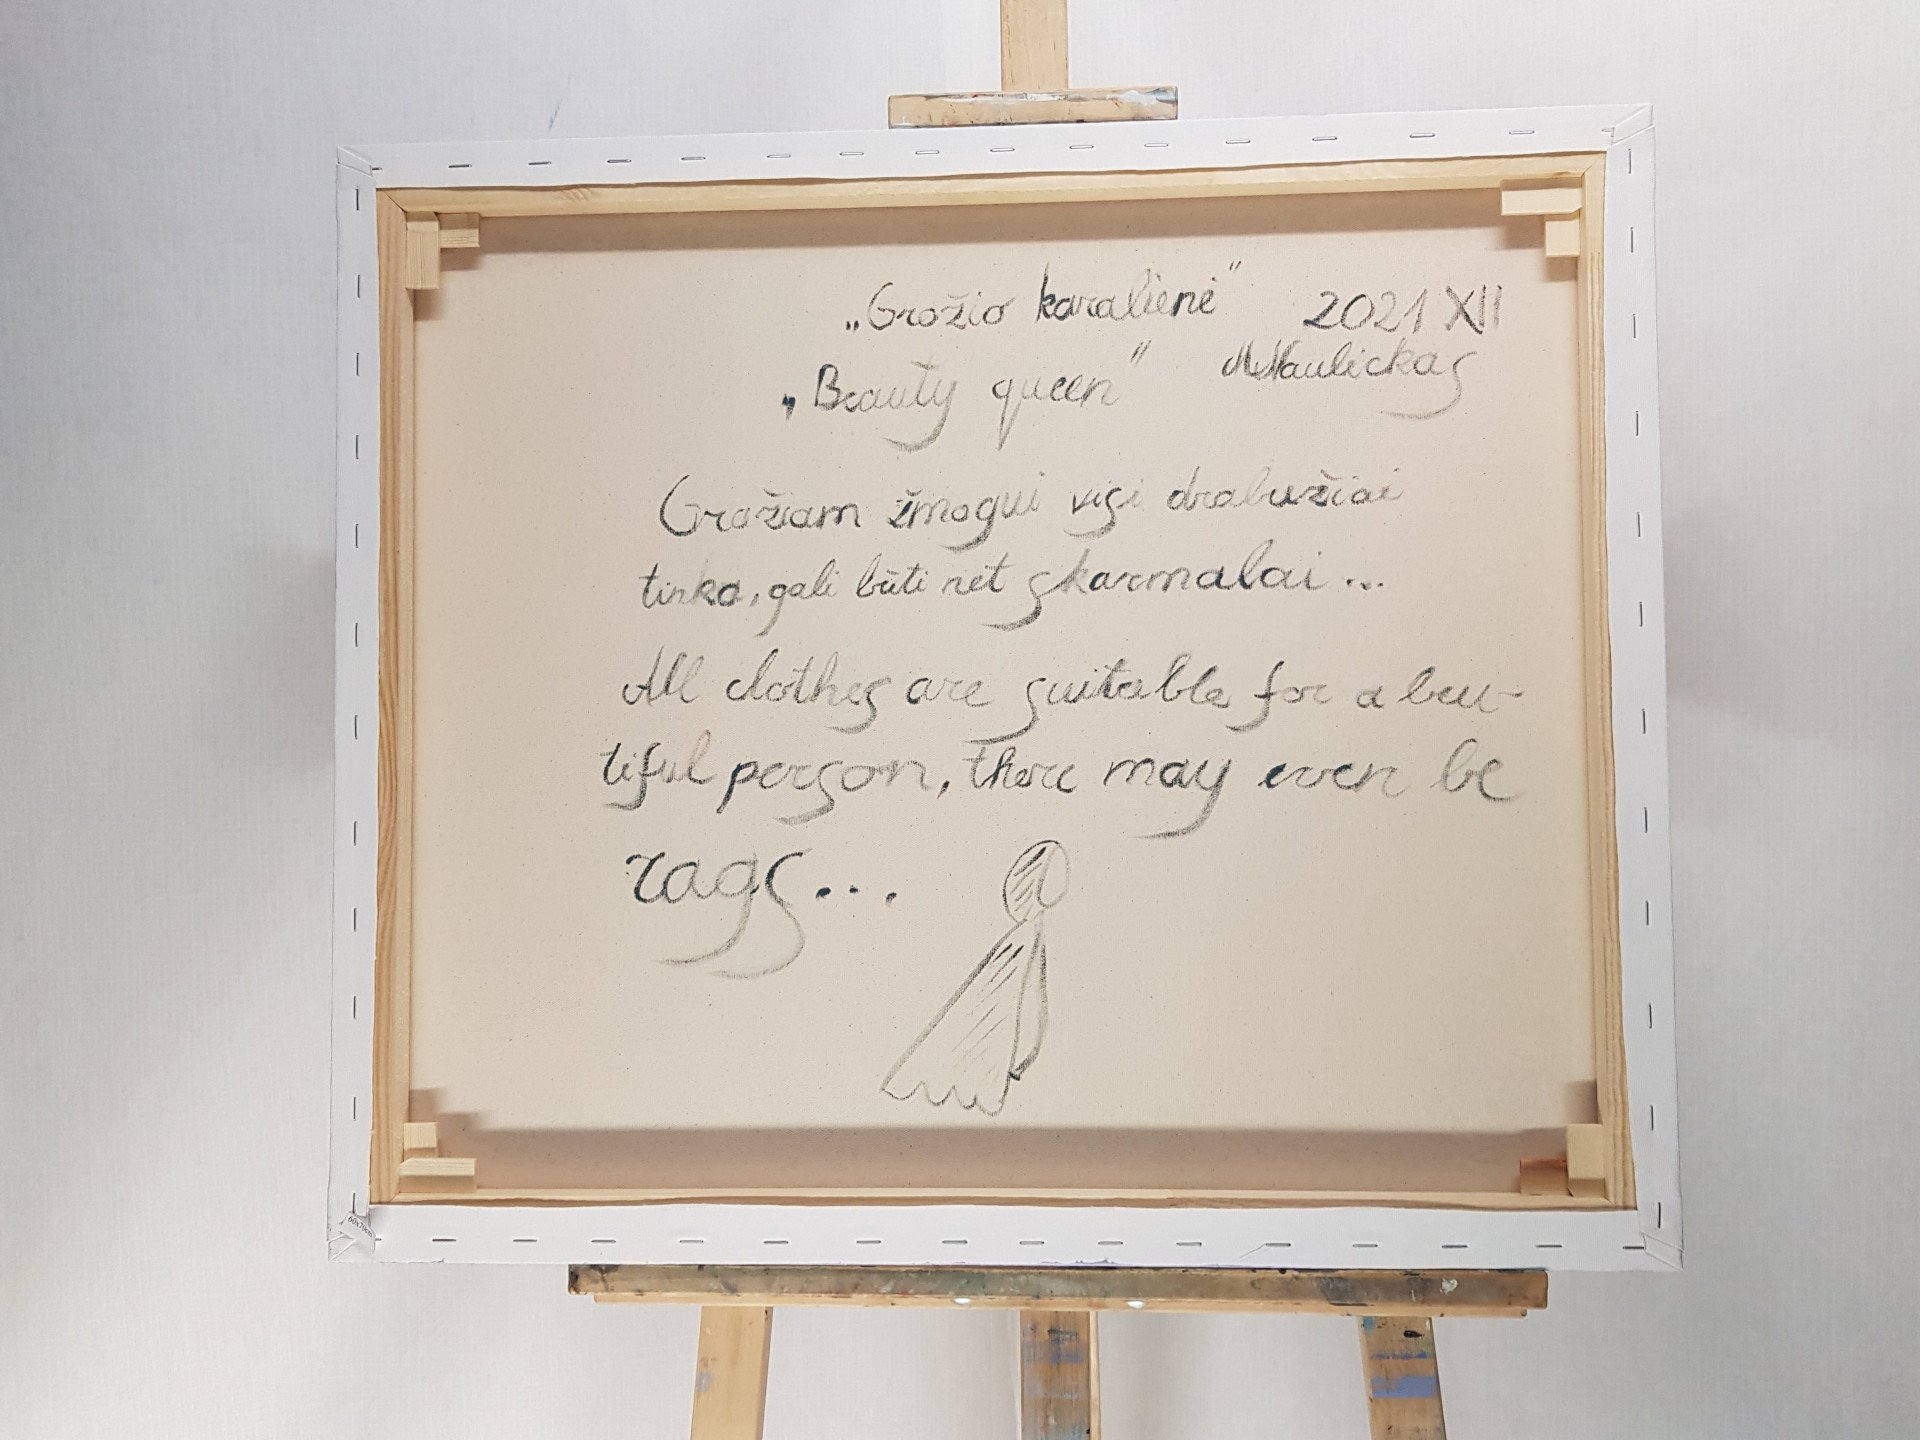 „Grožio karalienė" 2021 XII
„Beauty queen" M.Naulickas
Gražiam žmogui visi drabužiai
tinka, gali būti net skarmalai...
All clothes are suitable for a beu-
tiful person, there may even be
rags...
60x70cm